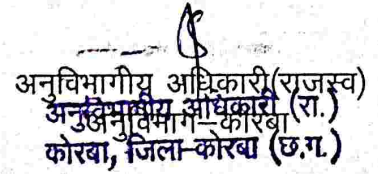 अनुविभागीय अधिकारी(राजस्व)
अनुविभागीय अधिकारी (रा.)
अनुविभाग-कोरबा
कोरबा, जिला-कोरबा (छ.ग.)